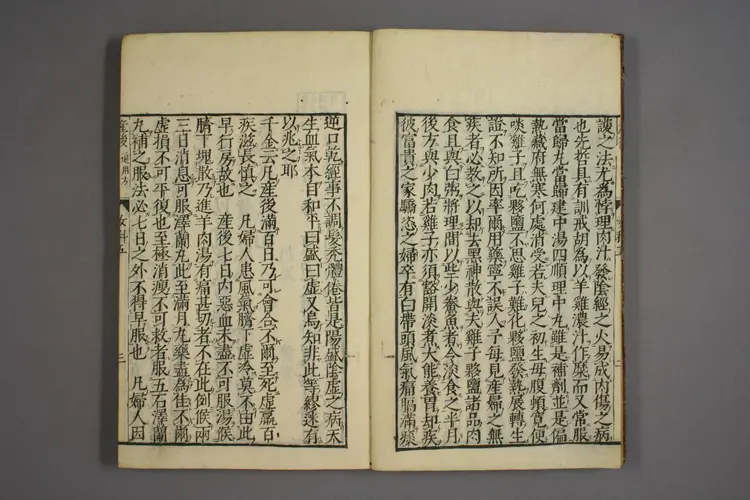 護之法尤爲悖理肉汁發陰經之火易成內傷之病
也先哲具有訓戒胡爲以羊雞濃汁作糜而又常服
當歸丸當歸建中湯四順理中丸雖是補劑並是偏
熱藏府無寒何處消受若夫兒之初生母腹頓寬便
啖雞子且吃夥鹽不思雞子難化夥鹽發熱展轉生
證不知所因率爾用藥寧不誤人予每見產婦之無
疾者必教之以却去黑神散與夫雞子夥鹽諸品肉
食且與白粥將理間以些少鯗魚煮令淡食之半月
後方與少肉若雞子亦須豁開淡煮大能養胃却疾
彼富貴之家驕恣之婦卒有白帶頭風氣痛膈滿痰
逆口乾經事不調髮禿體倦皆是陽盛陰虛之病天
生血氣本自和平曰盛曰虛又烏知非此等繆迷有
以兆之耶
千金云凡產後滿百日乃可會合不爾至死虛羸百
疾滋長慎之 凡婦人患風氣臍下虛冷莫不由此
早行房故也 產後七日內惡血未盡不可服湯候
臍下塊散乃進羊肉湯有痛甚切者不在此例候兩
三日消息可服澤蘭丸比至滿月丸藥盡爲佳不爾
虛損不可平復也至極消瘦不可救者服五石澤蘭
丸補之服法必七日之外不得早服也 凡婦人因
產後 通用方 女科五 三